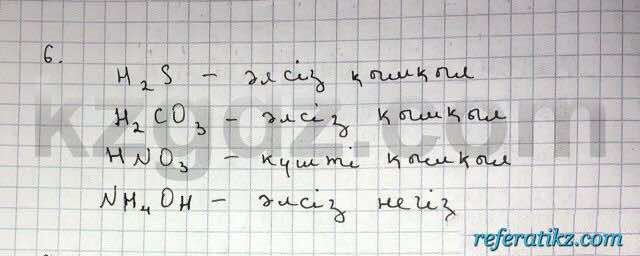 6.
H₂S – әлсіз қышқыл
H₂CO₃ – әлсіз қышқыл
HNO₃ – күшті қышқыл
NH₄OH – әлсіз негіз
kzgdz.com
referatikz.com